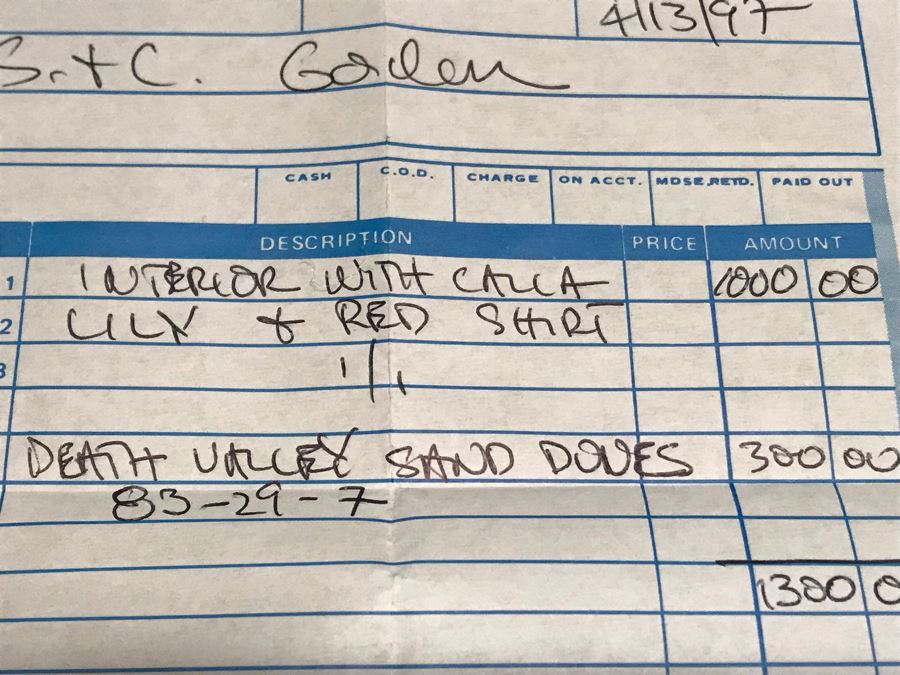 4/13/97
S. + C. Golden
CASH C.O.D. CHARGE ON ACCT. MDSE. RETD. PAID OUT
DESCRIPTION PRICE AMOUNT
1 INTERIOR WITH CALLA 1000 00
2 LILY + RED SHIRT
3 1/1
DEATH VALLEY SAND DOVES 300 00
83-29-7
1300 0